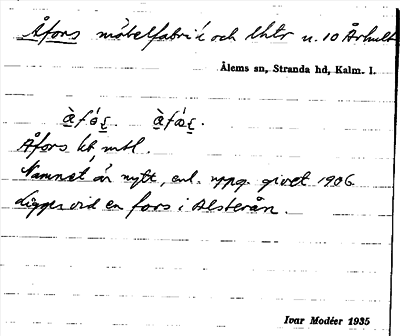 Åfors möbelfabrik och lhtr u. 10 Århult
Ålems sn, Stranda hd, Kalm. l.
Åfors
Namnet är nytt, enl. uppg. givet 1906
Ligger vid en fors i Alsterån.
Ivar Modéer 1935